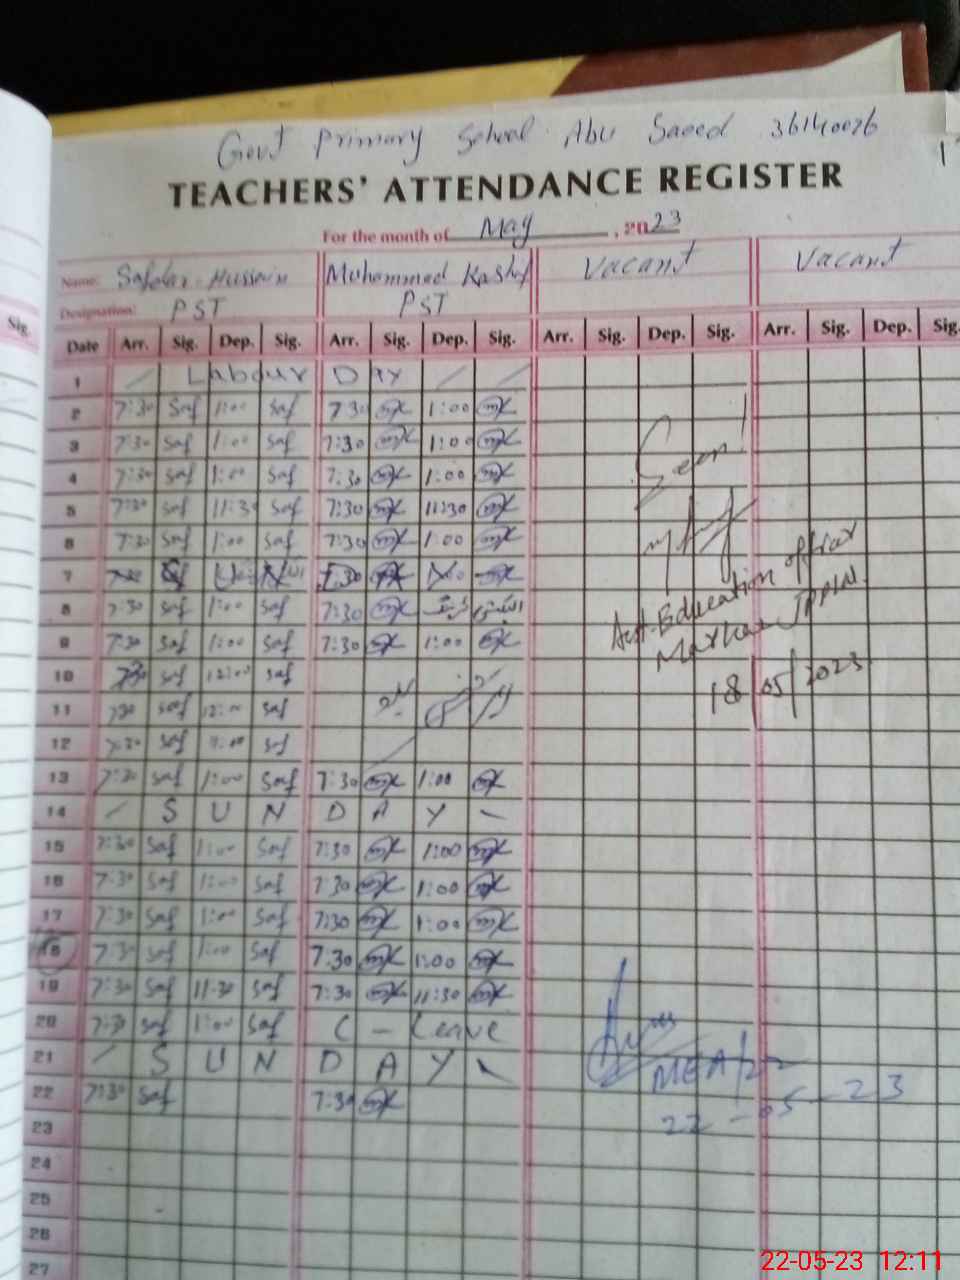 Govt Primary School Abu Saeed 36140026
TEACHERS' ATTENDANCE REGISTER
For the month of May, 2023
Name: Safdar Hussain Muhammad Kashif Vacant Vacant
Designation: PST PST
Sig.
Date Arr. Sig. Dep. Sig. Arr. Sig. Dep. Sig. Arr. Sig. Dep. Sig. Arr. Sig. Dep. Sig.
1 Labour Day
2 7:30 Saf 1:00 Saf 7:30 1:00
3 7:30 Saf 1:00 Saf 7:30 1:00
4 7:30 Saf 1:00 Saf 7:30 1:00
5 7:30 Saf 11:30 Saf 7:30 11:30
6 7:30 Saf 1:00 Saf 7:30 1:00
7
8 7:30 Saf 1:00 Saf 7:30
9 7:30 Saf 1:00 Saf 7:30 1:00
10 7:30 Saf 12:00 Saf
11 7:30 Saf 12:00 Saf
12 7:30 Saf Saf
13 7:30 Saf 1:00 Saf 7:30 1:00
14 S U N D A Y
15 7:30 Saf 1:00 Saf 7:30 1:00
16 7:30 Saf 1:00 Saf 7:30 1:00
17 7:30 Saf 1:00 Saf 7:30 1:00
18 7:30 Saf 1:00 Saf 7:30 1:00
19 7:30 Saf 11:30 Saf 7:30 11:30
20 7:30 Saf 1:00 Saf C - Leave
21 S U N D A Y
22 7:30 Saf 7:30
23
24
25
26
27
Seen!
Asst. Education officer
Markaz
18/05/2023
MEA
22-05-23
22-05-23 12:11